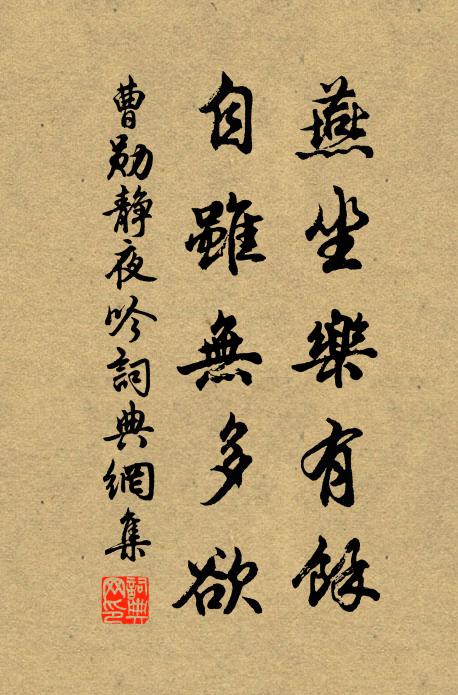 燕坐樂有餘
自雖無多欲
曹勛靜夜吟詞典網集
詞典
网印